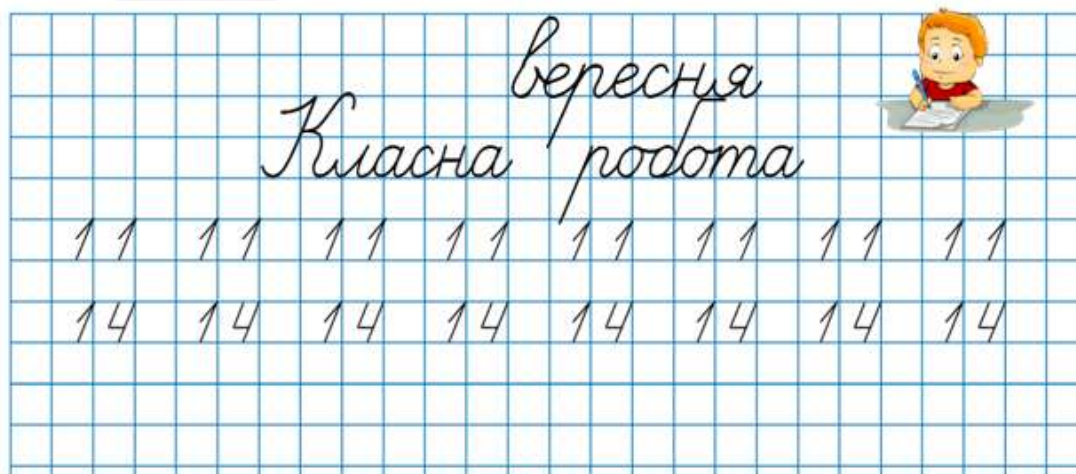 вересня
Класна робота
11 11 11 11 11 11 11 11
14 14 14 14 14 14 14 14